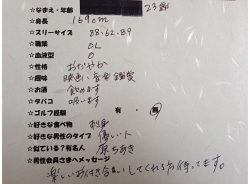 ☆なまえ・年齢 23歳
☆身長 169cm
☆スリーサイズ 88・62・89
☆職業 OL
☆血液型 O
☆性格 おだやか
☆趣味 映画・音楽鑑賞
☆お酒 飲めます
☆タバコ 吸います
☆ゴルフ経験 有・無
☆好きな食べ物
☆好きな男性のタイプ 優しい人
☆似ている？有名人 原ちあき
☆男性会員さまへメッセージ
楽しいお付き合いしてくれる方待ってます。